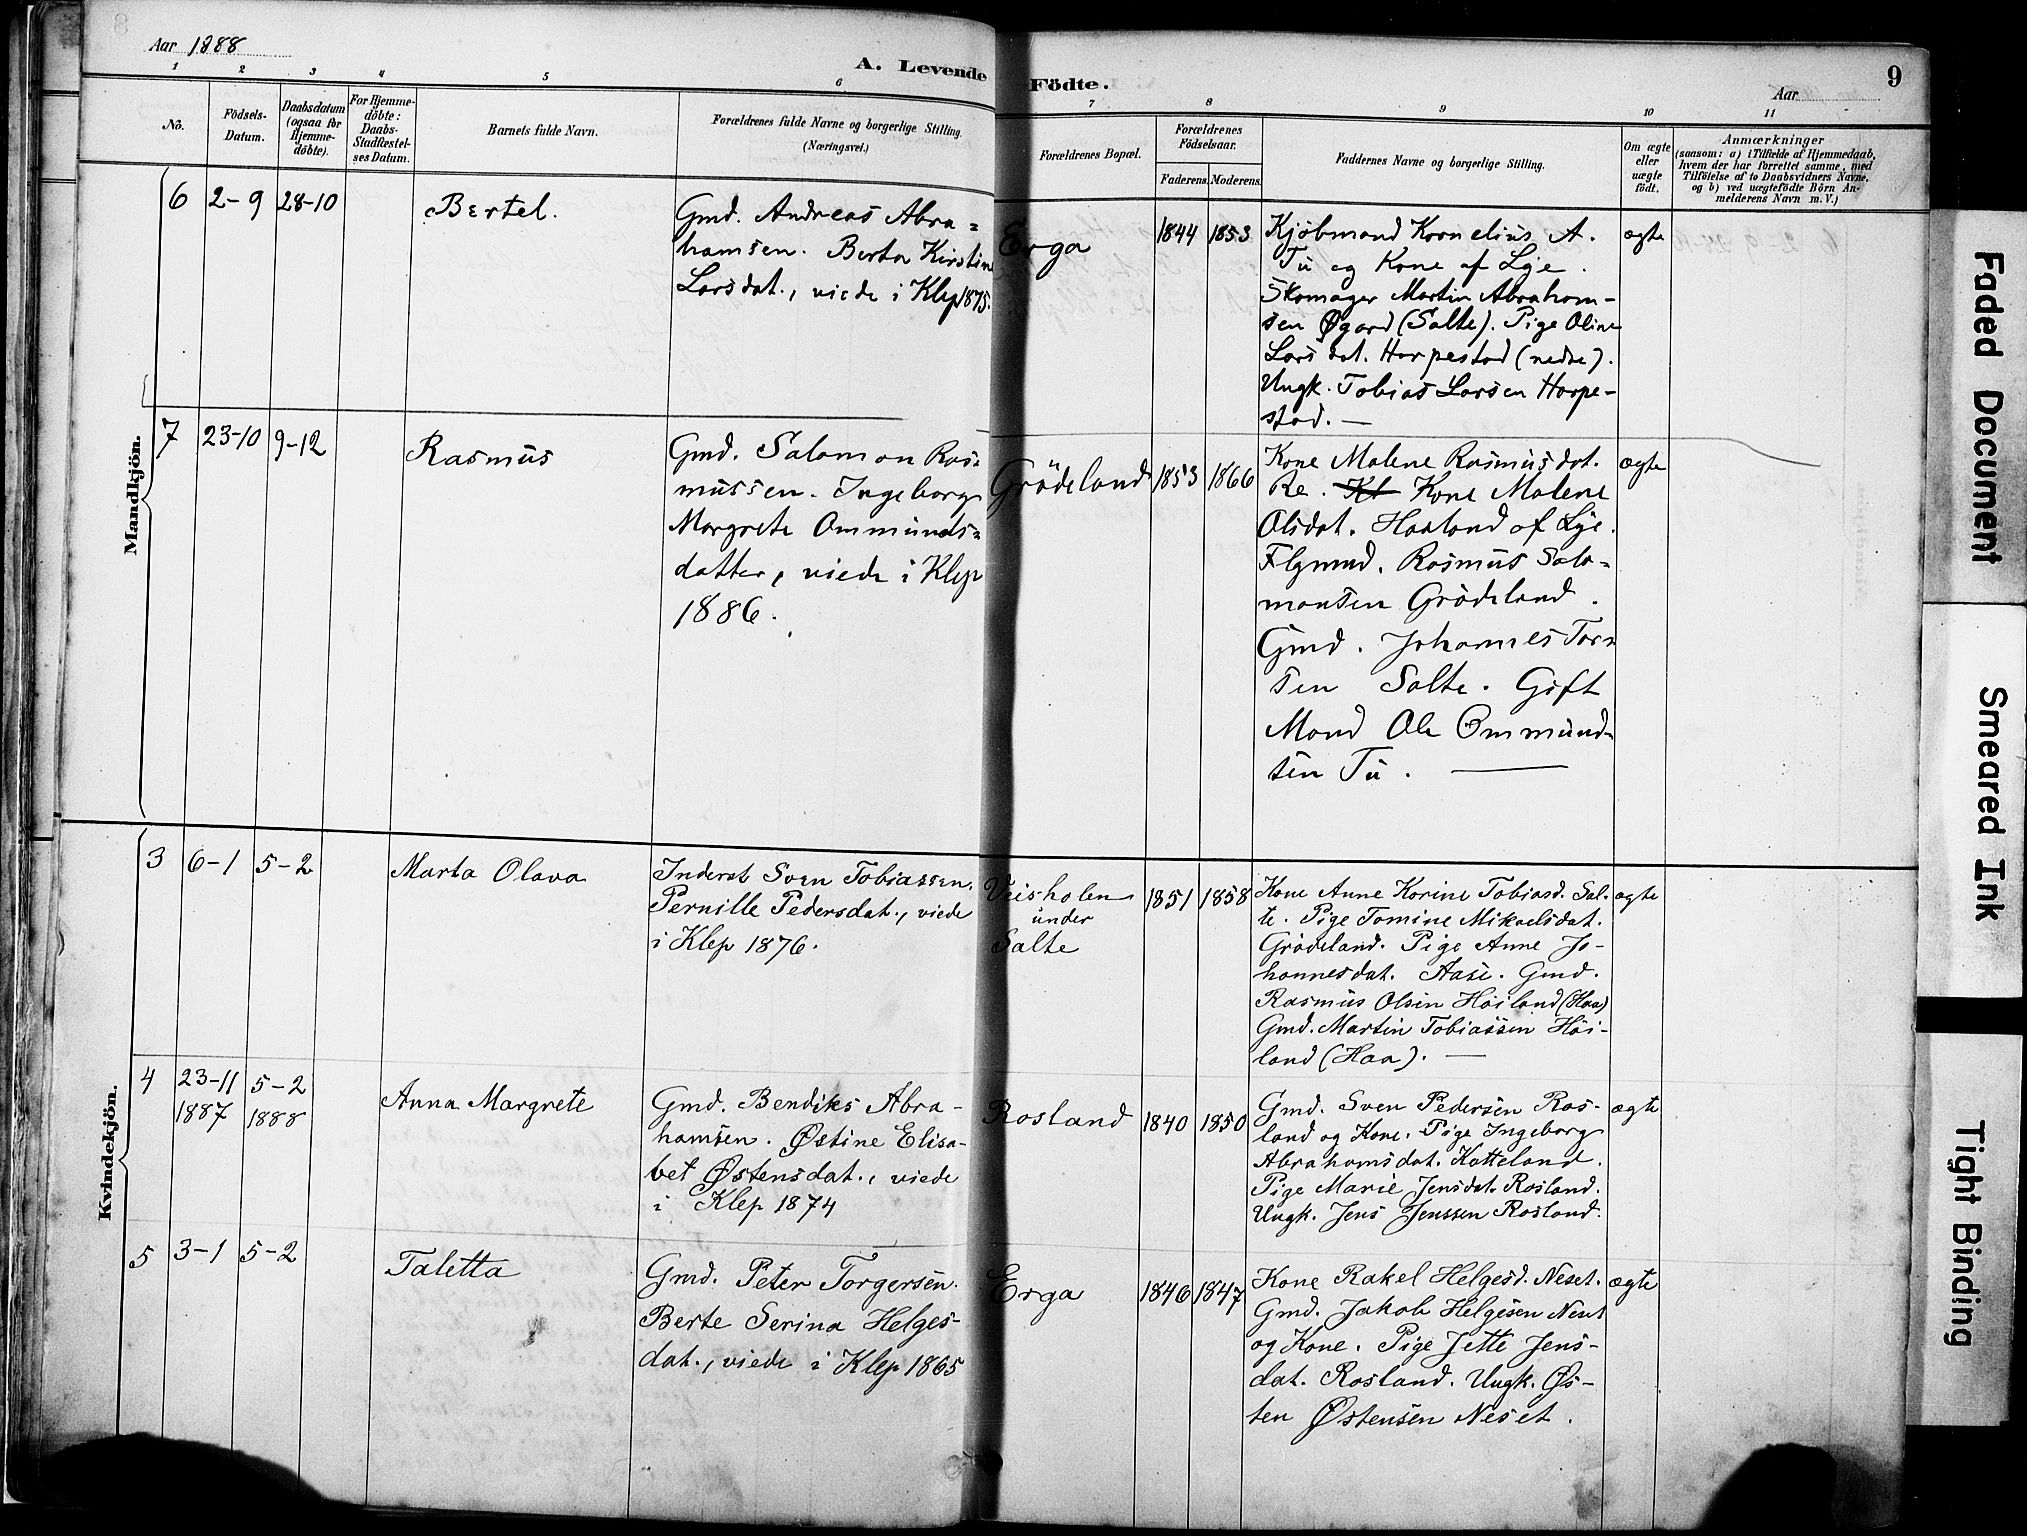 8
Aar 1888
A. Levende Födte.
Aar
9
1 2 3 4 5 6 7 8 9 10 11
No.
Födsels-
Datum.
Daabsdatum
(ogsaa for
Hjemme-
döbte).
For Hjemme-
döbte:
Daabs-
Stadfæstel-
ses Datum.
Barnets fulde Navn.
Forældrenes fulde Navne og borgerlige Stilling.
(Næringsvei.)
Forældrenes Bopæl.
Forældrenes
Födselsaar.
Faderens. Moderens.
Faddernes Navne og borgerlige Stilling.
Om ægte
eller
uægte
födt.
Anmærkninger
(saasom: a) i Tilfælde af Hjemmedaab,
hvem der har forrettet samme, med
Tilföielse af to Daabsvidners Navne,
og b) ved uægtefödte Börn An-
melderens Navn m. V.)
Mandkjön.
6 2-9 28-10
Bertel.
Gmd. Andreas Abra=
hamsen. Berta Kirstine
Larsdat., viede i Klep 1875.
Erga
1844 1853
Kjöbmand Kornelius A.
Tu og Kone af Lye.
Skomager Martin Abraham-
sen Øgard (Salte). Pige Oline
Larsdat. Harpestad (nedre).
Ungk. Tobias Larsen Harpe-
stad. —
ægte
7 23-10 9-12
Rasmus
Gmd. Salomon Ras=
mussen. Ingeborg
Margrete Ommunds=
datter, viede i Klep
1886.
Grödeland
1853 1866
Kone Malene Rasmusdat.
Re. Kl Kone Malene
Olsdat. Haaland af Lye.
Flgmnd. Rasmus Salo-
monsen Grödeland.
Gmd. Johannes Tors=
sen Salte. Gift
Mand Ole Ommund-
sen Tu. —
ægte
Kvindekjön.
3 6-1 5-2
Marta Olava
Inderst Sven Tobiassen.
Pernille Pedersdat., viede
i Klep 1876.
Veisholen
under
Salte
1851 1858
Kone Anne Karine Tobiasd. Sal-
te. Pige Tomine Mikaelsdat.
Grödeland. Pige Anne Jo-
hannesdat. Aase. Gmd.
Rasmus Olsen Höiland (Haa)
Gmd. Martin Tobiassen Höi-
land (Haa). —
ægte
4 23-11 5-2
1887 1888
Anna Margrete
Gmd. Bendiks Abra-
hamsen. Østine Elisa-
bet Østensdat., viede
i Klep 1874
Rosland
1840 1850
Gmd. Sven Pedersen Ros-
land og Kone. Pige Ingeborg
Abrahamsdat. Katteland.
Pige Marie Jensdat. Rosland.
Ungk. Jens Jenssen Rosland.
ægte
5 3-1 5-2
Taletta
Gmd. Peter Torgersen.
Berte Serina Helges-
dat., viede i Klep 1865
Erga
1846 1847
Kone Rakel Helgesd. Neset.
Gmd. Jakob Helgesen Neset
og Kone. Pige Jette Jens-
dat. Rosland. Ungk. Øs-
ten Østensen Neset.
ægte
Faded Document
Smeared Ink
Tight Binding